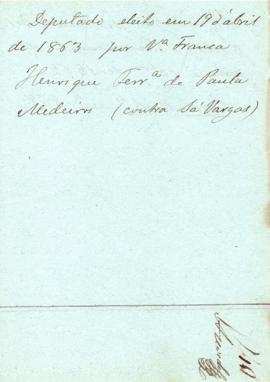 Deputado eleito em 19 d'abril
de 1863 por Vª Franca
Henrique Ferrª de Paula
Medeiros (contra Sá Vargas)